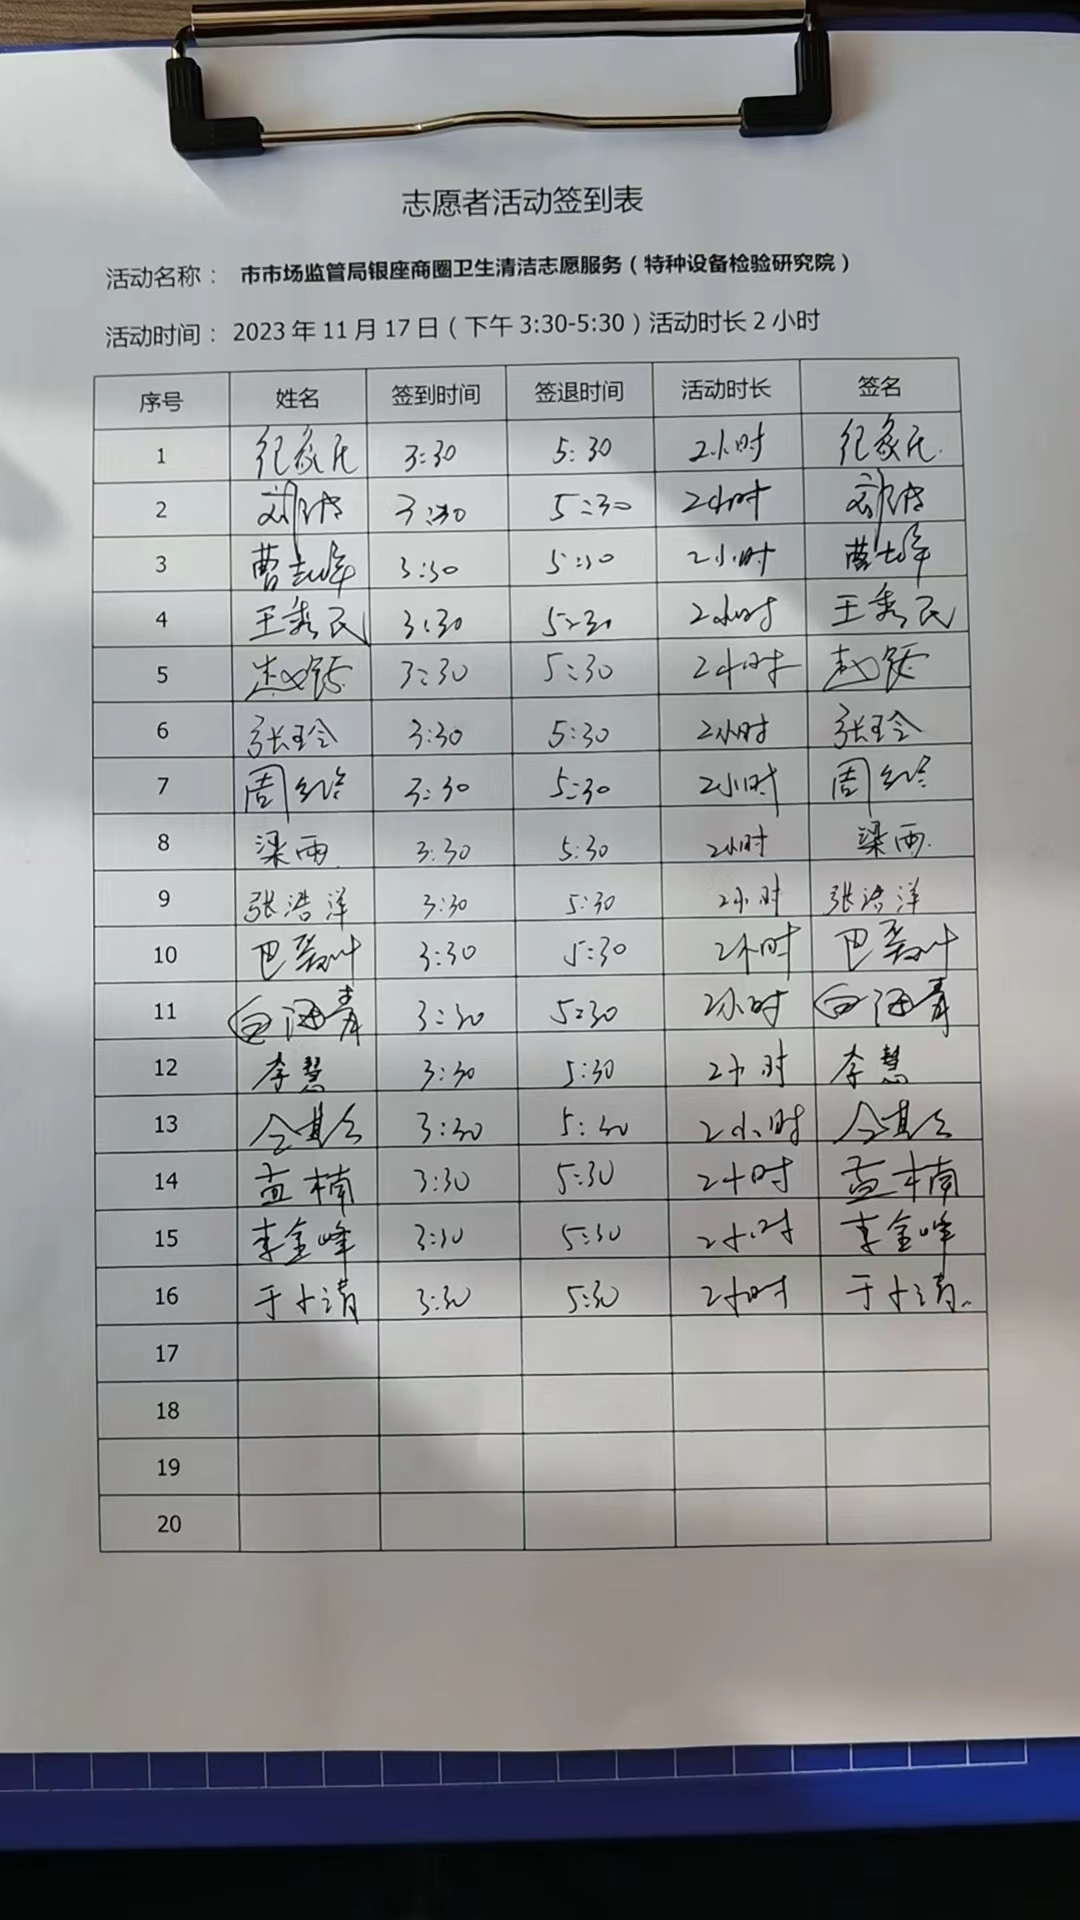 志愿者活动签到表
活动名称： 市市场监管局银座商圈卫生清洁志愿服务（特种设备检验研究院）
活动时间： 2023年11月17日（下午3:30-5:30）活动时长2小时
序号 姓名 签到时间 签退时间 活动时长 签名
1 3:30 5:30 2小时
2 3:30 5:30 2小时
3 曹志峰 3:30 5:30 2小时 曹志峰
4 王秀民 3:30 5:30 2小时 王秀民
5 3:30 5:30 2小时
6 张玲 3:30 5:30 2小时 张玲
7 周 3:30 5:30 2小时 周
8 梁雨 3:30 5:30 2小时 梁雨
9 张浩洋 3:30 5:30 2小时 张浩洋
10 巴 3:30 5:30 2小时 巴
11 白海青 3:30 5:30 2小时 白海青
12 李慧 3:30 5:30 2小时 李慧
13 3:30 5:30 2小时
14 孟楠 3:30 5:30 2小时 孟楠
15 李金峰 3:30 5:30 2小时 李金峰
16 于 清 3:30 5:30 2小时 于 清
17
18
19
20